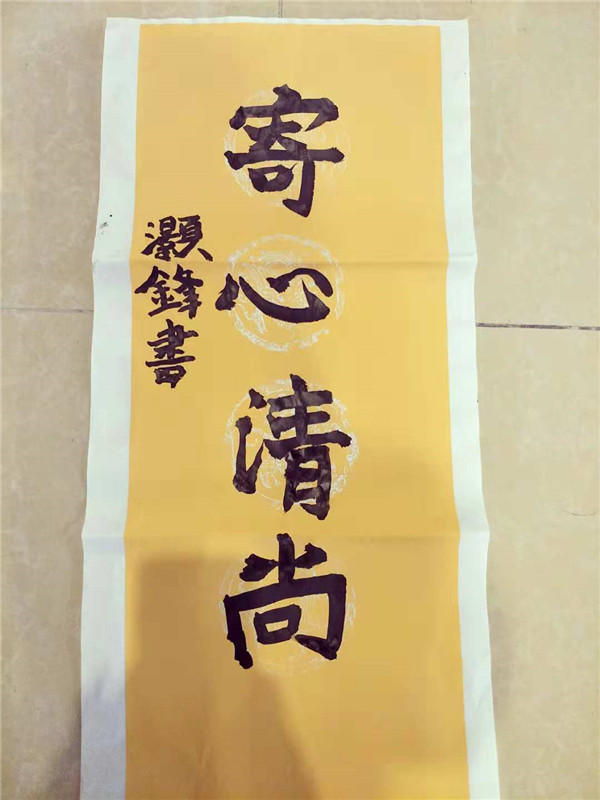 寄心清尚
灝鋒書